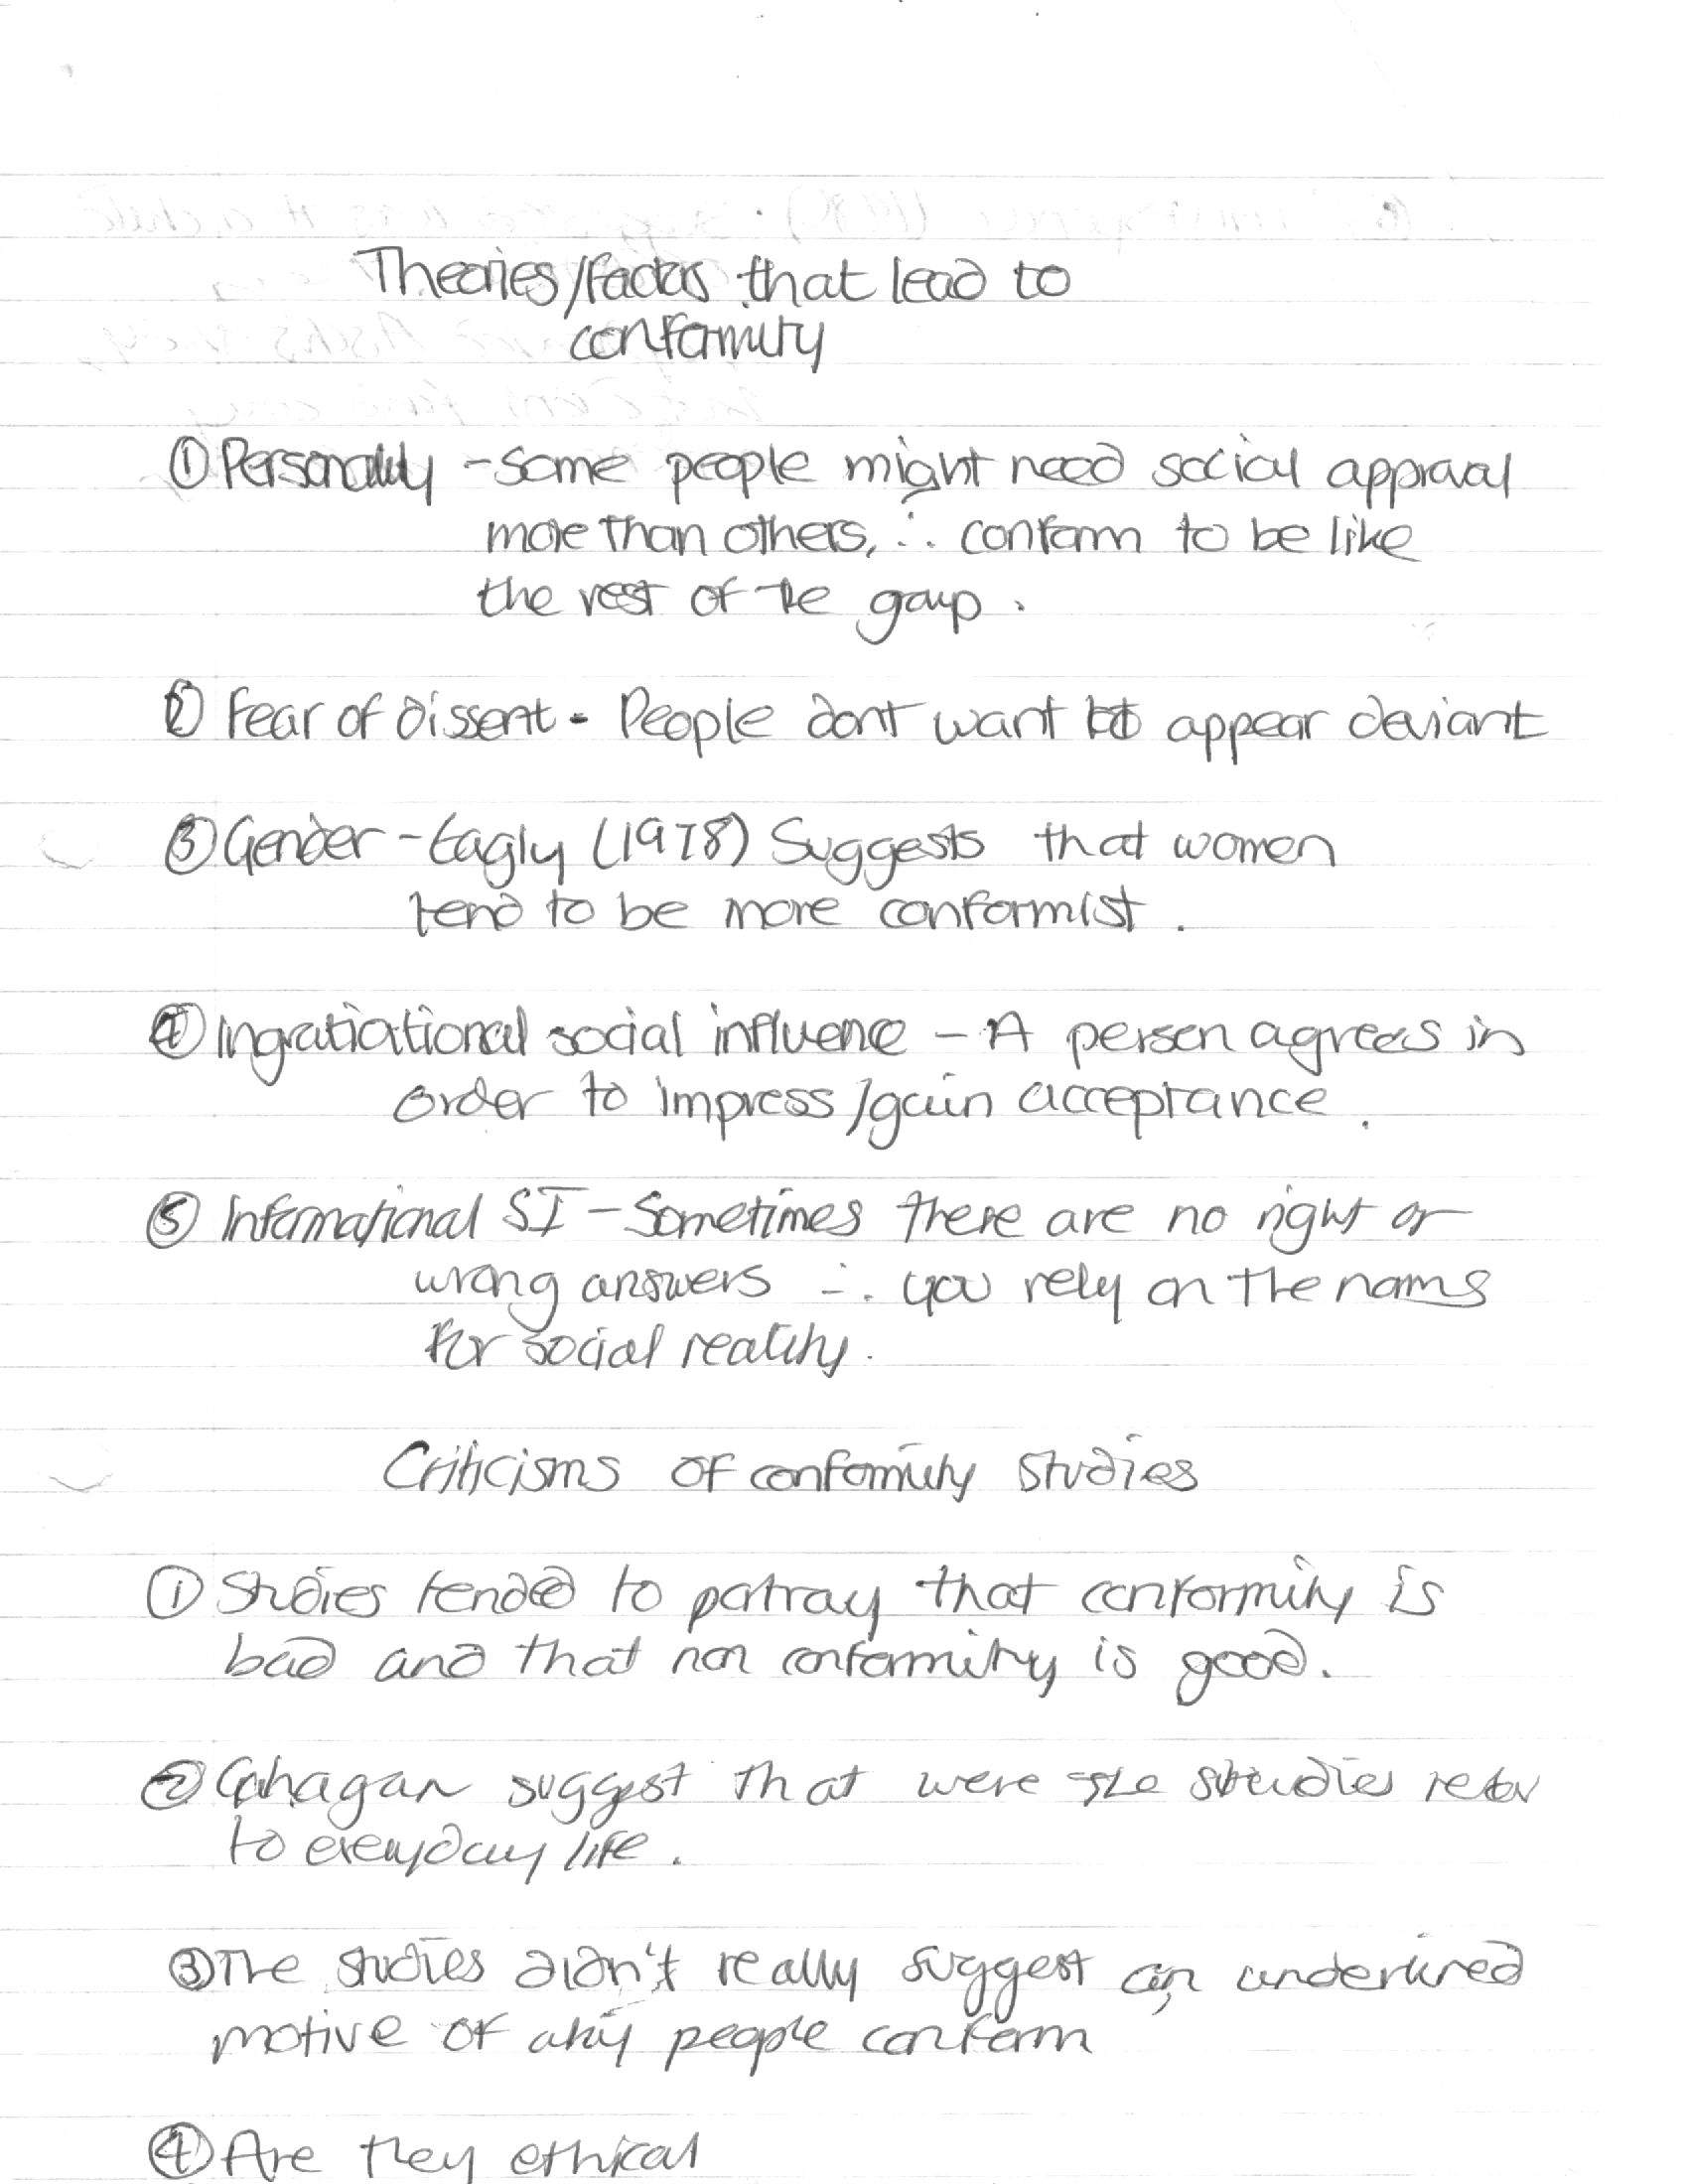 Theories/factors that lead to
conformity
① Personality - Some people might need social approval
more than others, ∴ conform to be like
the rest of the group.
② Fear of dissent - People dont want to appear deviant
③ Gender - Eagly (1978) Suggests that women
tend to be more conformist.
④ Ingratiational social influence - A person agrees in
order to impress/gain acceptance.
⑤ Informational SI - Sometimes there are no right or
wrong answers ∴ you rely on the norms
for social reality.
Criticisms of conformity studies
① Studies tended to portray that conformity is
bad and that non conformity is good.
② Gahagan suggest that were the studies
to everyday life.
③ The studies didn't really suggest an underlined
motive of why people conform
④ Are they ethical